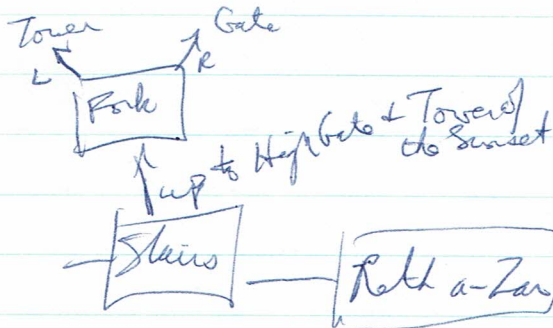 Tower Gate
L R
Fork
up to High Gate & Tower of
the Sunset
Stairs
Rath a-Zar